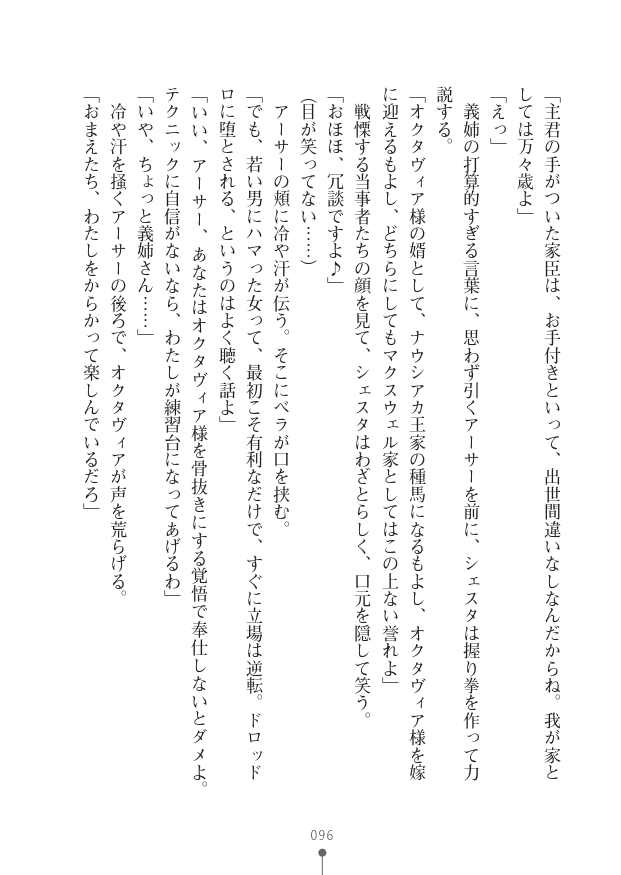 「主君の手がついた家臣は、お手付きといって、出世間違いなしなんだからね。我が家と
しては万々歳よ」
「えっ」
義姉の打算的すぎる言葉に、思わず引くアーサーを前に、シェスタは握り拳を作って力
説する。
「オクタヴィア様の婿として、ナウシアカ王家の種馬になるもよし、オクタヴィア様を嫁
に迎えるもよし、どちらにしてもマクスウェル家としてはこの上ない誉れよ」
戦慄する当事者たちの顔を見て、シェスタはわざとらしく、口元を隠して笑う。
「おほほ、冗談ですよ♪」
（目が笑ってない……）
アーサーの頬に冷や汗が伝う。そこにベラが口を挟む。
「でも、若い男にハマった女って、最初こそ有利なだけで、すぐに立場は逆転。ドロッド
ロに堕とされる、というのはよく聴く話よ」
「いい、アーサー、あなたはオクタヴィア様を骨抜きにする覚悟で奉仕しないとダメよ。
テクニックに自信がないなら、わたしが練習台になってあげるわ」
「いや、ちょっと義姉さん……」
冷や汗を掻くアーサーの後ろで、オクタヴィアが声を荒らげる。
「おまえたち、わたしをからかって楽しんでいるだろ」
096